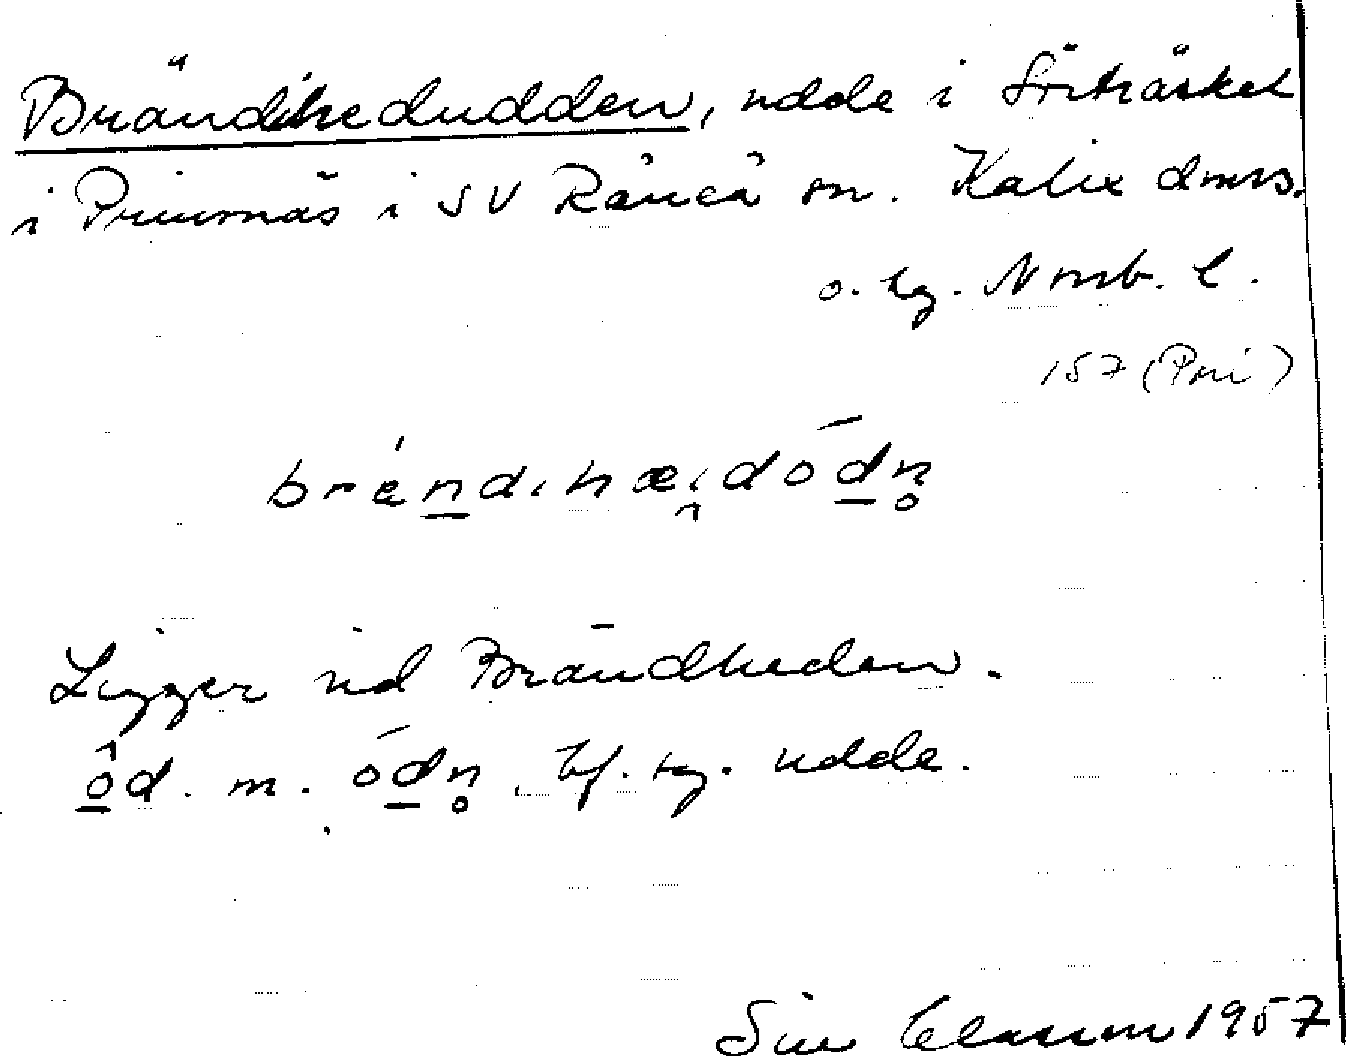 Brändihedudden, udde i Sörträsket
i Prinsnäs i SV Råneå sn. Kalix dmrs.
o. hg. Norrb. l.
157 (Pri)
bréndihæi̯dódn̥
Ligger vid Brändheden.
ôd. m. ódn̥ bf. hg. udde.
Siv Clarsson 1957